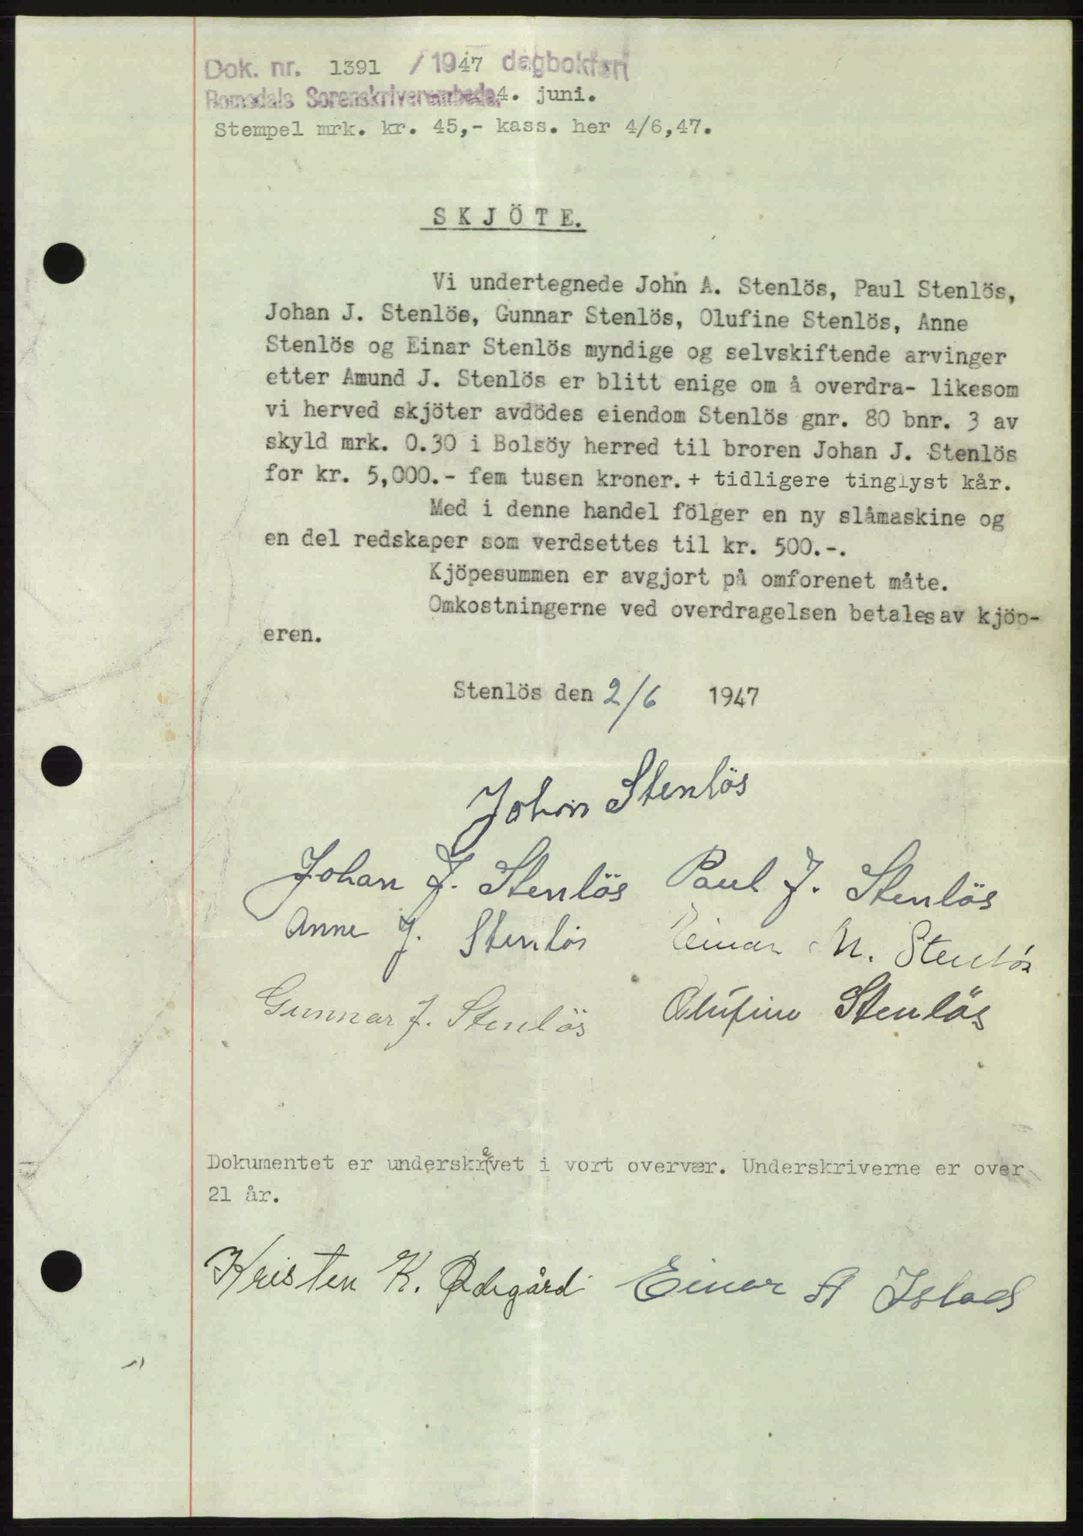 Dok. nr. 1391 / 1947 dagbokført
Romsdals Sorenskriverembede, 4. juni.
Stempel mrk. kr. 45,- kass. her 4/6,47.
S K J Ö T E.
Vi undertegnede John A. Stenlös, Paul Stenlös,
Johan J. Stenlös, Gunnar Stenlös, Olufine Stenlös, Anne
Stenlös og Einar Stenlös myndige og selvskiftende arvinger
etter Amund J. Stenlös er blitt enige om å overdra- likesom
vi herved skjöter avdödes eiendom Stenlös gnr. 80 bnr. 3 av
skyld mrk. 0.30 i Bolsöy herred til broren Johan J. Stenlös
for kr. 5,000.- fem tusen kroner. + tidligere tinglyst kår.
Med i denne handel fölger en ny slåmaskine og
en del redskaper som verdsettes til kr. 500.-.
Kjöpesummen er avgjort på omforenet måte.
Omkostningerne ved overdragelsen betales av kjöp-
eren.
Stenlös den 2/6 1947
John Stenlös
Johan J. Stenlös Paul J. Stenlös
Anne J. Stenlös Einar M. Stenlös
Gunnar J. Stenlös Olufine Stenlös
Dokumentet er underskrevet i vort overvær. Underskriverne er over
21 år.
Kristen K. Ødegård Einar A Islad